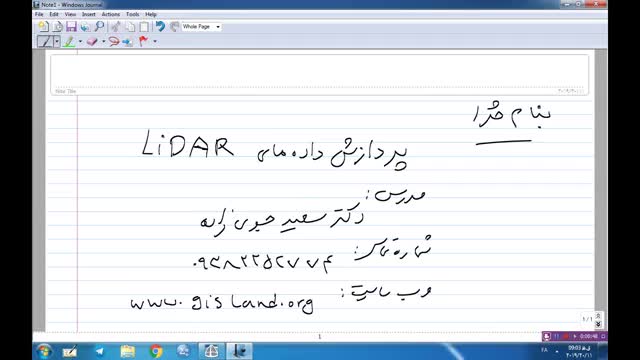 Note1 - Windows Journal
File Edit View Insert Actions Tools Help
Whole Page
Note Title
بنام خدا
پردازش داده های LiDAR
مدرس:
دکتر سعید جوی زاده
شماره تماس: ۰۹۳۸۲۲۵۲۷۷۴
وب سایت: www.gisland.org
1 / 1
1
0:00:48
FA
09:03 ق.ظ
۲۰۱۹/۲۰/۱۱